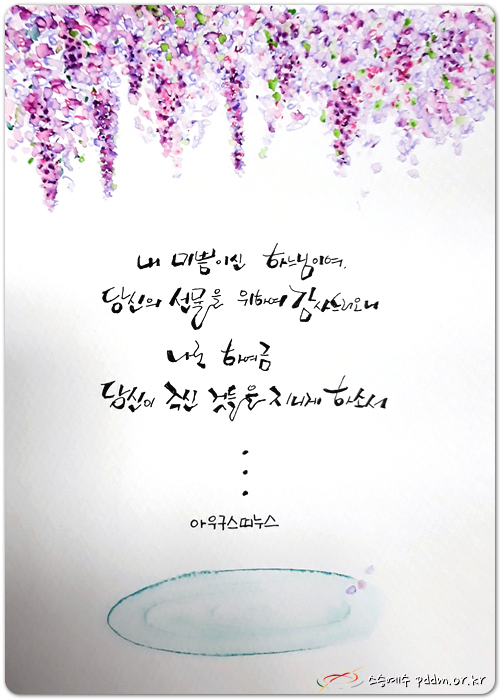 내 미쁨이신 하느님이여,
당신의 선물을 위하여 감사드리오니
나로 하여금
당신이 주신 것들을 지니게 하소서
아우구스띠누스
스승예수 pddm.or.kr